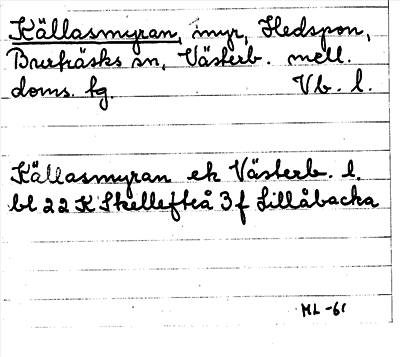 Källasmyran, myr, Hedspon,
Burträsks sn, Västerb. mell.
doms. fg. Vb. l.
Källasmyran ek Västerb. l.
bl 22 K Skellefteå 3 f Lillåbacka
ML -61